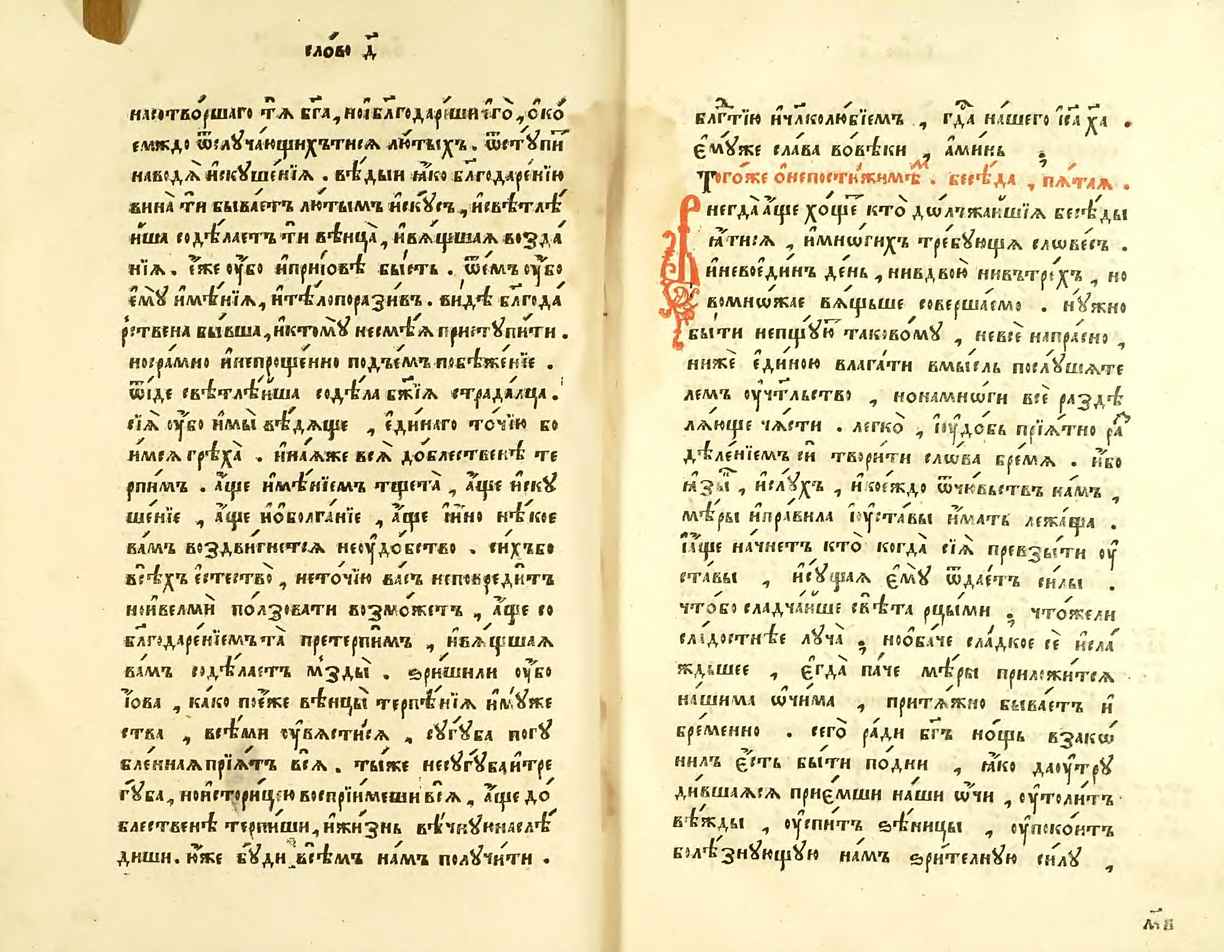 сло́во д҃
насотво́ршаго тѧ̀ бг҃а, ноиблагодари́ши его̀, ѻ҆ко́
емждо ѿслꙋча́ющихътисѧ лю́тыхъ. ѿстꙋпи
наводѧ̀ и҆скꙋше́нїѧ . вѣ́дыи ꙗ҆́ко блгодаре́нїю
вина̀ ти быва́етъ лю́тымъ и҆скꙋсъ, и҆свѣтлѣ́
и҆ша содѣ́лаетъ ти вѣнца̀, и҆вѧ́щшаѧ возда
нїѧ . е҆́же ᲂу҆бо и҆прїи́ове бы́сть . ѿе́мъ ᲂу҆бо
е҆мꙋ̀ и҆мѣ́нїѧ, и҆тѣ́лопорази́въ . ви́дѣ блгода
рственa бы́вша, и҆ктомꙋ̀ несмѣ́ѧ пристꙋпи́ти .
носра́мно и҆непроще́нно подъе́мъ побѣже́нїе .
ѿи́де свѣтлѣ́иша содѣ́ла бж҃їѧ страда́лца .
сїѧ̀ ᲂу҆́бо и҆мы̀ вѣ́дѧще , е҆ди́наго то́чїю бо
и҆мсѧ грѣха̀ . и҆на́ѧже всѧ̀ до́блественѣ те
рпи́мъ . а҆́ще и҆мѣ́нїемъ тщета̀ , а҆́ще и҆скꙋ
ше́нїе , а҆́ще и҆оболга́нїе , а҆́ще и҆́но нѣ́кое
ва́мъ воздви́гнетсѧ неᲂу҆до́бство . си́хъбо
всѣ́хъ е҆стество̀ , нето́чїю ва́съ неповреди́тъ
но и҆велмѝ по́лзовати возмо́жетъ , а҆́ще со
блгодаре́нїемъ та̀ претерпи́мъ , и҆вѧ́щшаѧ
ва́мъ содѣ́лаетъ мзды̀ . ѕри́шили ᲂу҆́бо
І҆́ова , ка́ко по́еже вѣнцы̀ терпѣ́нїѧ и҆мꙋже
ства , все́ми ᲂу҆вѧсти́сѧ , сꙋгꙋ́ба погꙋ
бле́ннаѧ прїѧ́тъ всѧ̀ . ты́же несꙋгꙋ́ба и҆тре
гꙋ́ба, но и҆стори́цею воспрїи́меши всѧ̀ , а҆́ще до́
блественѣ терпи́ши, и҆жи́знь вѣ́чнꙋю наслѣ́
диши. ю҆́же бꙋ́ди всѣ́мъ на́мъ полꙋчи́ти .
блгⷣтїю и҆члколю́бїемъ , гдⷭа на́шего і҆са ха .
е҆мꙋ́же сла́ва вовѣ́ки , а҆ми́нь ;
Того́же ѻ҆непости́жимѣмъ . бесѣ́да , пѧ́таѧ .
Е҆негда̀ а҆́ще хо́щетъ кто̀ дѡлжа́ишїѧ бесѣ́ды
ꙗ҆́тисѧ , и҆мно́гихъ тре́бꙋющѧ слѡве́съ .
и҆невое҆ди́нъ де́нь , нивдвою̀ нивътре́хъ , но
вомнѡжае вѧ́щьше соверша́емо . нꙋ́жно
бы́ти непщꙋ́ю таково́мꙋ , невсѐ напра́сно ,
нижѐ е҆ди́ною влага́ти вмы́сль послꙋ́шате
лемъ ᲂу҆чт҃льство , нонамнѡ́ги всѐ раздѣ
лѧ́юще ча́сти . легко̀ , и҆ᲂу҆до́бь прїѧ́тно ра
дѣле́нїемъ си́ твори́ти сло́ва бре́мѧ . и҆́бо
ꙗ҆зы́къ , и҆слꙋ́хъ , и҆кое́ждо ѿчю́вьствъ на́мъ ,
мѣ́ры и҆пра́вила и҆ᲂу҆ста́вы и҆́мать лежа́ща .
и҆а҆́ще начне́тъ кто̀ когда̀ сїѧ̀ превзы́ти ᲂу҆
ста́вы , и҆сꙋ́щаѧ е҆мꙋ̀ ѿдае́тъ си́лы .
что́бо сладча́ише свѣ́та рцы́ми ; что́жели
сла́достнѣе лꙋча̀ ; но ѻ҆ба́че сла́дкое сѐ и҆сла
ждьшее , е҆гда̀ па́че мѣ́ры прило́житсѧ
на́шима ѡ҆чи́ма , притѧ́жно быва́етъ и҆
бре́менно . сего̀ ра́ди бг҃ъ но́щь взако
ни́лъ е҆́сть бы́ти подни , ꙗ҆́ко даᲂу҆трꙋ
ди́вшаѧсѧ прие҆́мши на́ши ѡ҆́чи , ᲂу҆толи́тъ
вѣ́жды , ᲂу҆спи́тъ ѕѣ́ницы , ᲂу҆поко́итъ
болѣ́знꙋющꙋю на́мъ ѕри́телнꙋю си́лꙋ ,